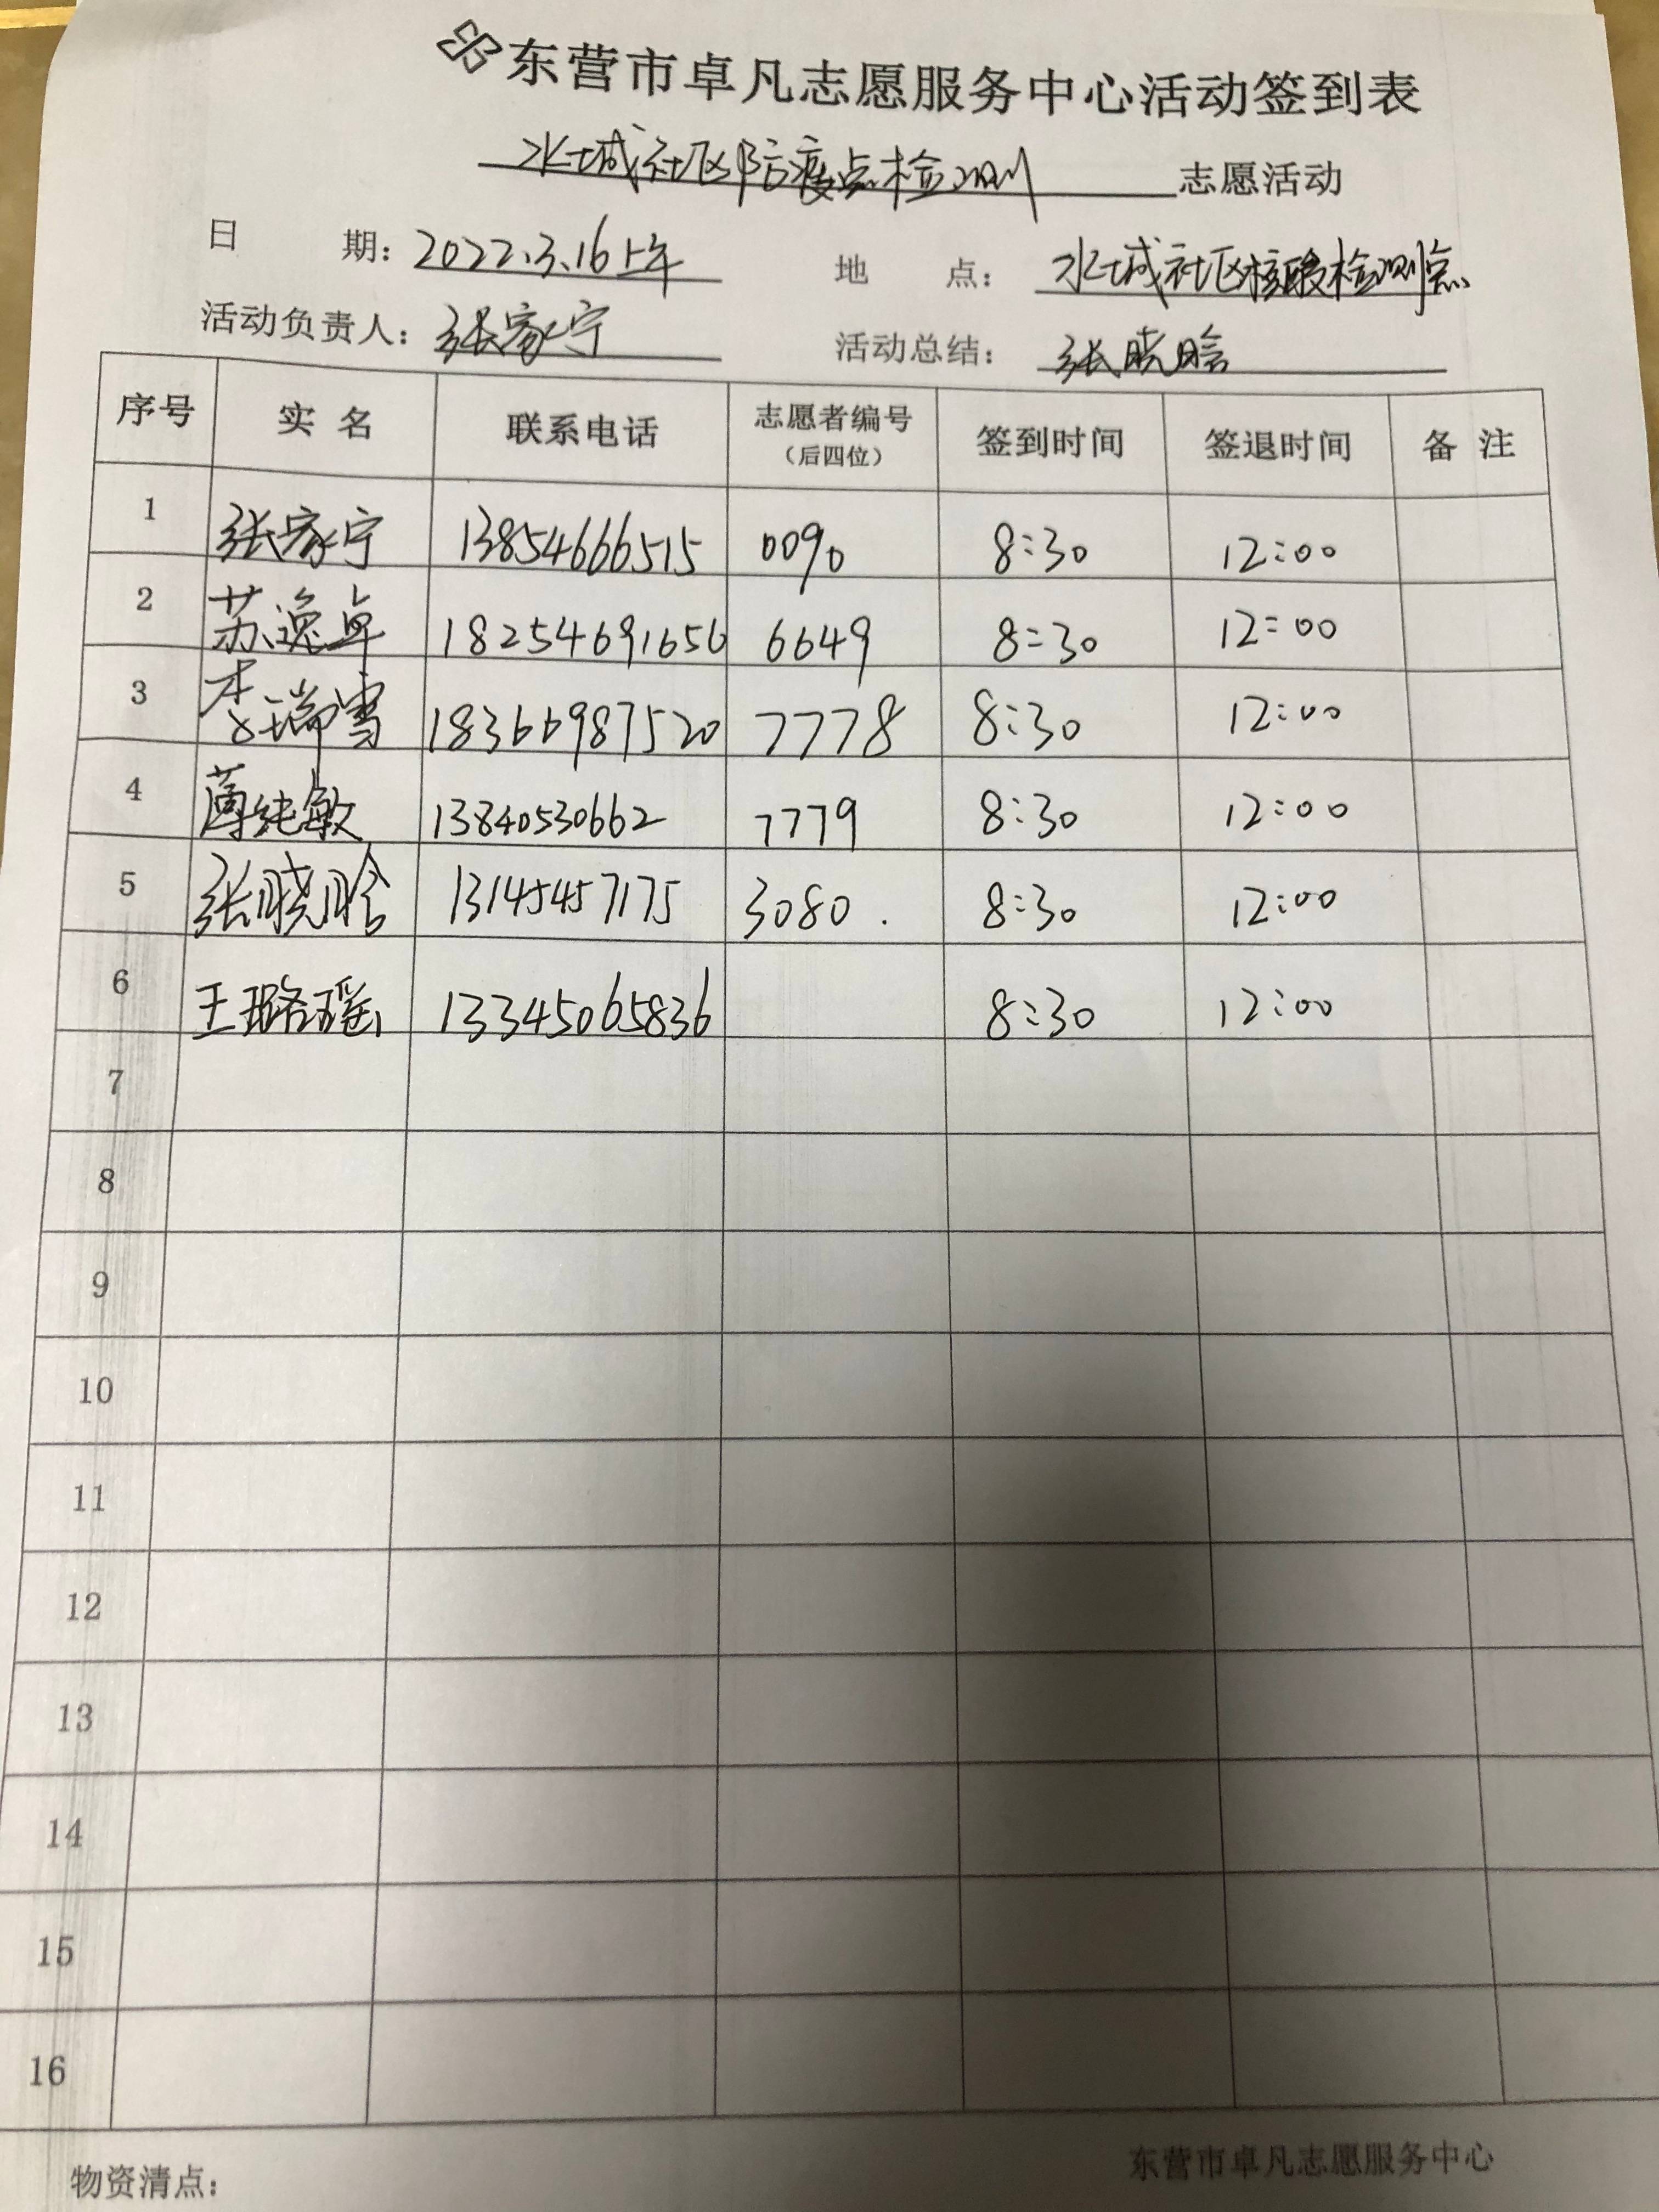 东营市卓凡志愿服务中心活动签到表
水城社区防疫点检测 志愿活动
日 期：2022.3.16上午 地 点：水城社区核酸检测点
活动负责人：张家宁 活动总结：张晓晗
序号 实 名 联系电话 志愿者编号（后四位） 签到时间 签退时间 备 注
1 张家宁 13854666515 0090 8:30 12:00
2 苏逸卓 18254691656 6649 8:30 12:00
3 李瑞雪 18366987520 7778 8:30 12:00
4 薄纯敏 13840530662 7779 8:30 12:00
5 张晓晗 13145457175 3080. 8:30 12:00
6 王璐瑶 13345065836 8:30 12:00
7
8
9
10
11
12
13
14
15
16
物资清点： 东营市卓凡志愿服务中心